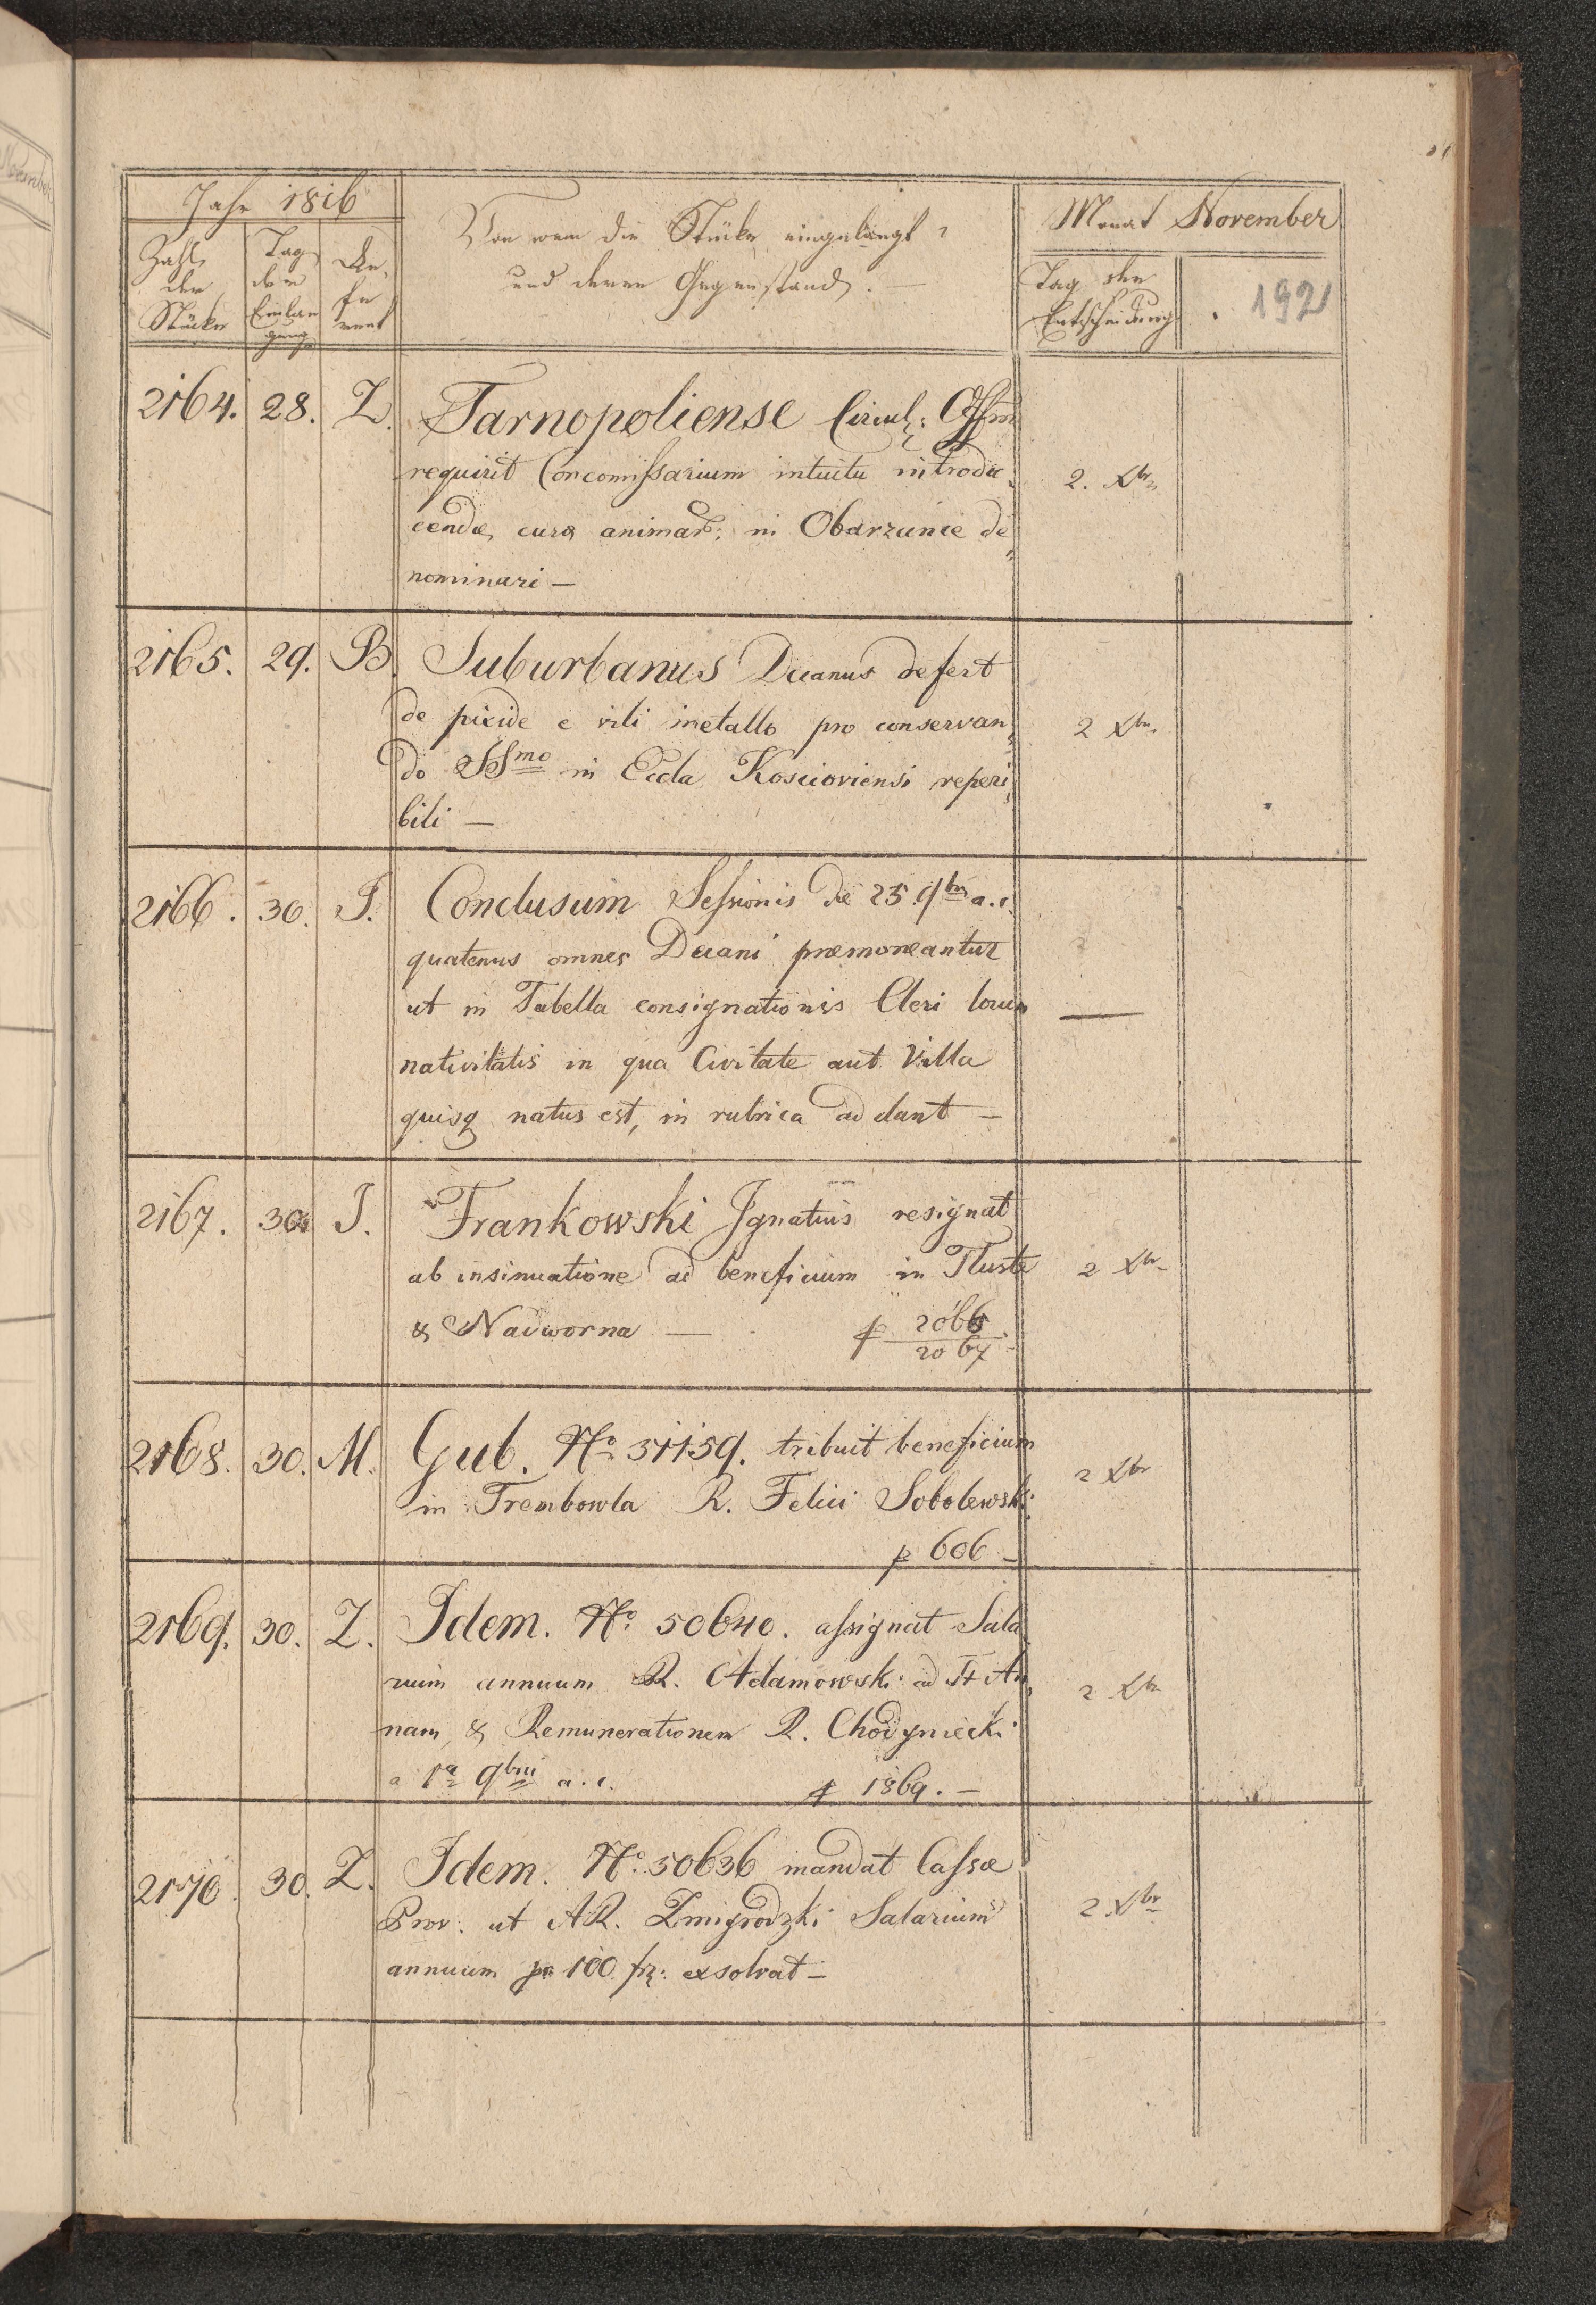 Jahr 1816
Zahl der Stücke
Tag der Einlangung
Referent
Von wem die Stücke eingelangt?
und deren Gegenstand. —
Monat November
Tag der Entscheidung
192
2164. 28. Z. Tarnopoliense Circul: Offm
requirit Concomissarium intuitu introdu
cendæ curæ animar: in Obarzance de
nominari — 2. Xbr
2165. 29. B. Suburbanus Decanus defert
de pixide e vili metallo pro conservan
do SSmo in Eccla Koscioviensi reperi
bili — 2 Xbr.
2166. 30. J. Conclusum Sessionis de 25 9br a.c.
quatenus omnes Decani præmoneantur
ut in Tabella consignationis Cleri locum
nativitatis in qua Civitate aut Villa
quisq natus est, in rubrica addant —
2167. 30. J. Frankowski Ignatius resignat
ab insinuatione ad beneficium in Tluste
& Nadworna — p 2066/2067. 2 Xbr
2168. 30. M. Gub. No 51159. tribuit beneficium
in Trembowla R. Felici Sobolewski
p 606 — 2 Xbr
2169. 30. Z. Idem. No 50640. assignat Sala
rium annuum R. Adamowski ad St An
nam, & Remunerationem R. Chodyniecki
a 1a 9bris a.c. p 1869. — 2 Xbr
2170. 30. Z. Idem. No 50636 mandat Cassæ
Prov. ut AR. Zmigrodzki Salarium
annuum pr 100 fr: exsolvat — 2 Xbr